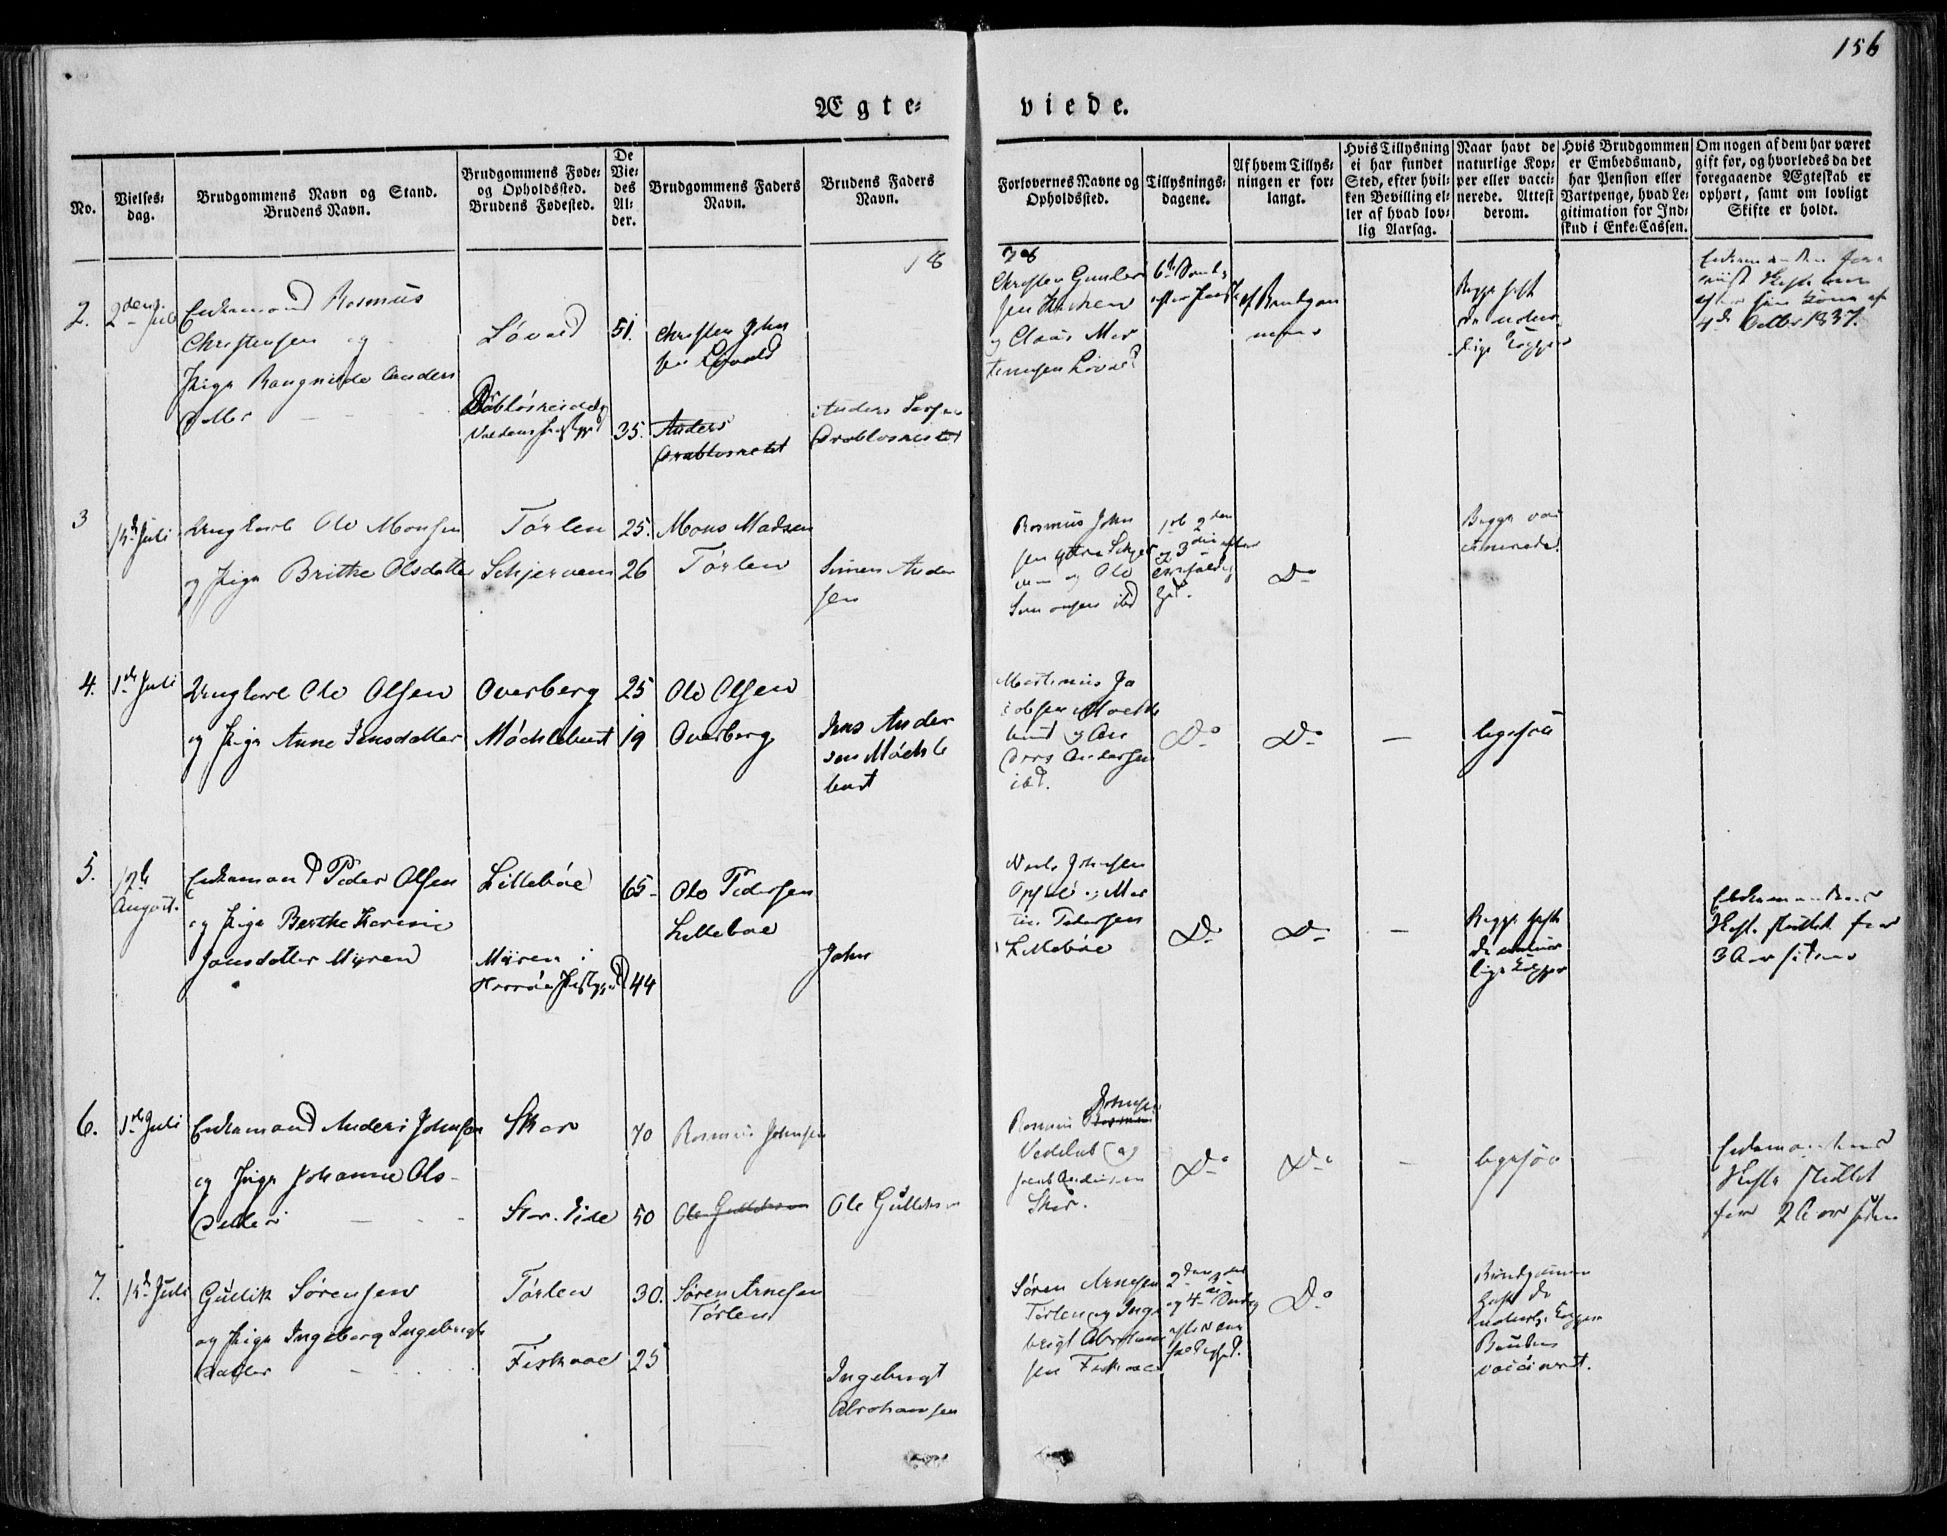 156
Ægte-
viede.
No.
Vielses-
dag.
Brudgommens Navn og Stand.
Brudens Navn.
Brudgommens Føde-
og Opholdssted.
Brudens Fødested.
De
Vie-
des
Al-
der.
Brudgommens Faders
Navn.
Brudens Faders
Navn.
Forlovernes Navne og
Opholdssted.
Tillysnings-
dagene.
Af hvem Tillys-
ningen er for-
langt.
Hvis Tillysning
ei har fundet
Sted, efter hvil-
ken Bevilling el-
ler af hvad lov-
lig Aarsag.
Naar havt de
naturlige Kop-
per eller vacci-
nerede. Attest
derom.
Hvis Brudgommen
er Embedsmand,
har Pension eller
Vartpenge, hvad Le-
gitimation for Ind-
skud i Enke-Cassen.
Om nogen af dem har været
gift før, og hvorledes da det
foregaaende Ægteskab er
ophørt, samt om lovligt
Skifte er holdt.
18
38
2.
2den Juli
Enkemand Rasmus
Christensen og
Pige Rangnilde Anders
datter
Løvold
51.
35.
Christen John
sen Løvold
Anders
og Claus Mor
tensen Løvold
af Brudgom
men
Begge haft
de natur
lige Kopper
4de Octbr 1837.
3
15de Juli
Ungkarl Ole Monsen
og Pige Brithe Olsdatter
Tørlen
Schjervem
25.
26
Mons Madsen
Tørlen
Simen Ander
sen
Rasmus John
sen ytre Schjer
vem og Ole
Simonsen ibd
1ste 2den
og 3die efter
Do
Begge vac
cinerede.
4.
1ste Juli
Ungkarl Ole Olsen
og Pige Anne Jensdatter
Overberg
Møchlebust
25
19
Ole Olsen
Overberg
Jens Ander
sen Møchle
bust
Martinus Ja
cobsen Møchle
bust og An
ders Andersen
ibd.
Do
Do
—
ligesaa
5.
12te
August.
Enkemand Peder Olsen
og Pige Berthe Karine
Jonsdatter Myren
Lillebøe
Myren i
65
44
Ole Pedersen
Lillebøe
John
Niels Johnsen
Opsal og Mar
tin Pedersen
Lillebøe
Do
Do
—
Begge haft
de natur
lige Kopper
Enkemanden
Skifte sluttet for
3 Aar siden
6.
1ste Juli
Enkemand Anders Johnsen
og Pige Johanne Ols-
datter
Skor
Stor-Eide
70
50
Rasmus Johnsen
Ole Gulliksen
Ole Gulliksen
Johnsen
Rasmus
Jacob Andersen
Skor.
Do
Do
—
ligesaa
Enkemandens
Skifte sluttet
for 2 Aar siden
7.
15de Juli
Gullik Sørensen
og Pige Ingeborg Ingebrigts
datter
Tørlen
Fiskaae
30.
25
Søren Arnesen
Tørlen
Ingebrigt
Abrahamsen
Søren Arnesen
Tørlen og Inge
brigt Abraham
sen Fiskaae
og 4de Søndag
Do
Brudgommen
haft de
naturlige Kopper
Bruden
vaccineret.